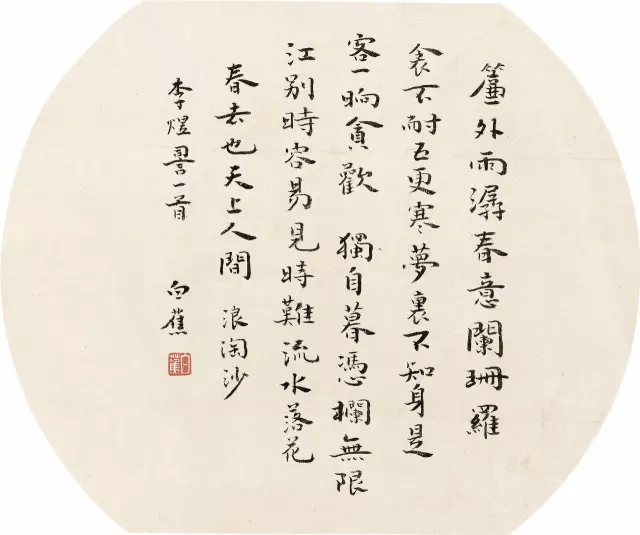 簾外雨潺春意闌珊羅
衾不耐五更寒夢裏不知身是
客一晌貪歡 獨自暮憑欄無限
江別時容易見時難流水落花
春去也天上人間 浪淘沙
李煜詞一首 白蕉
白蕉